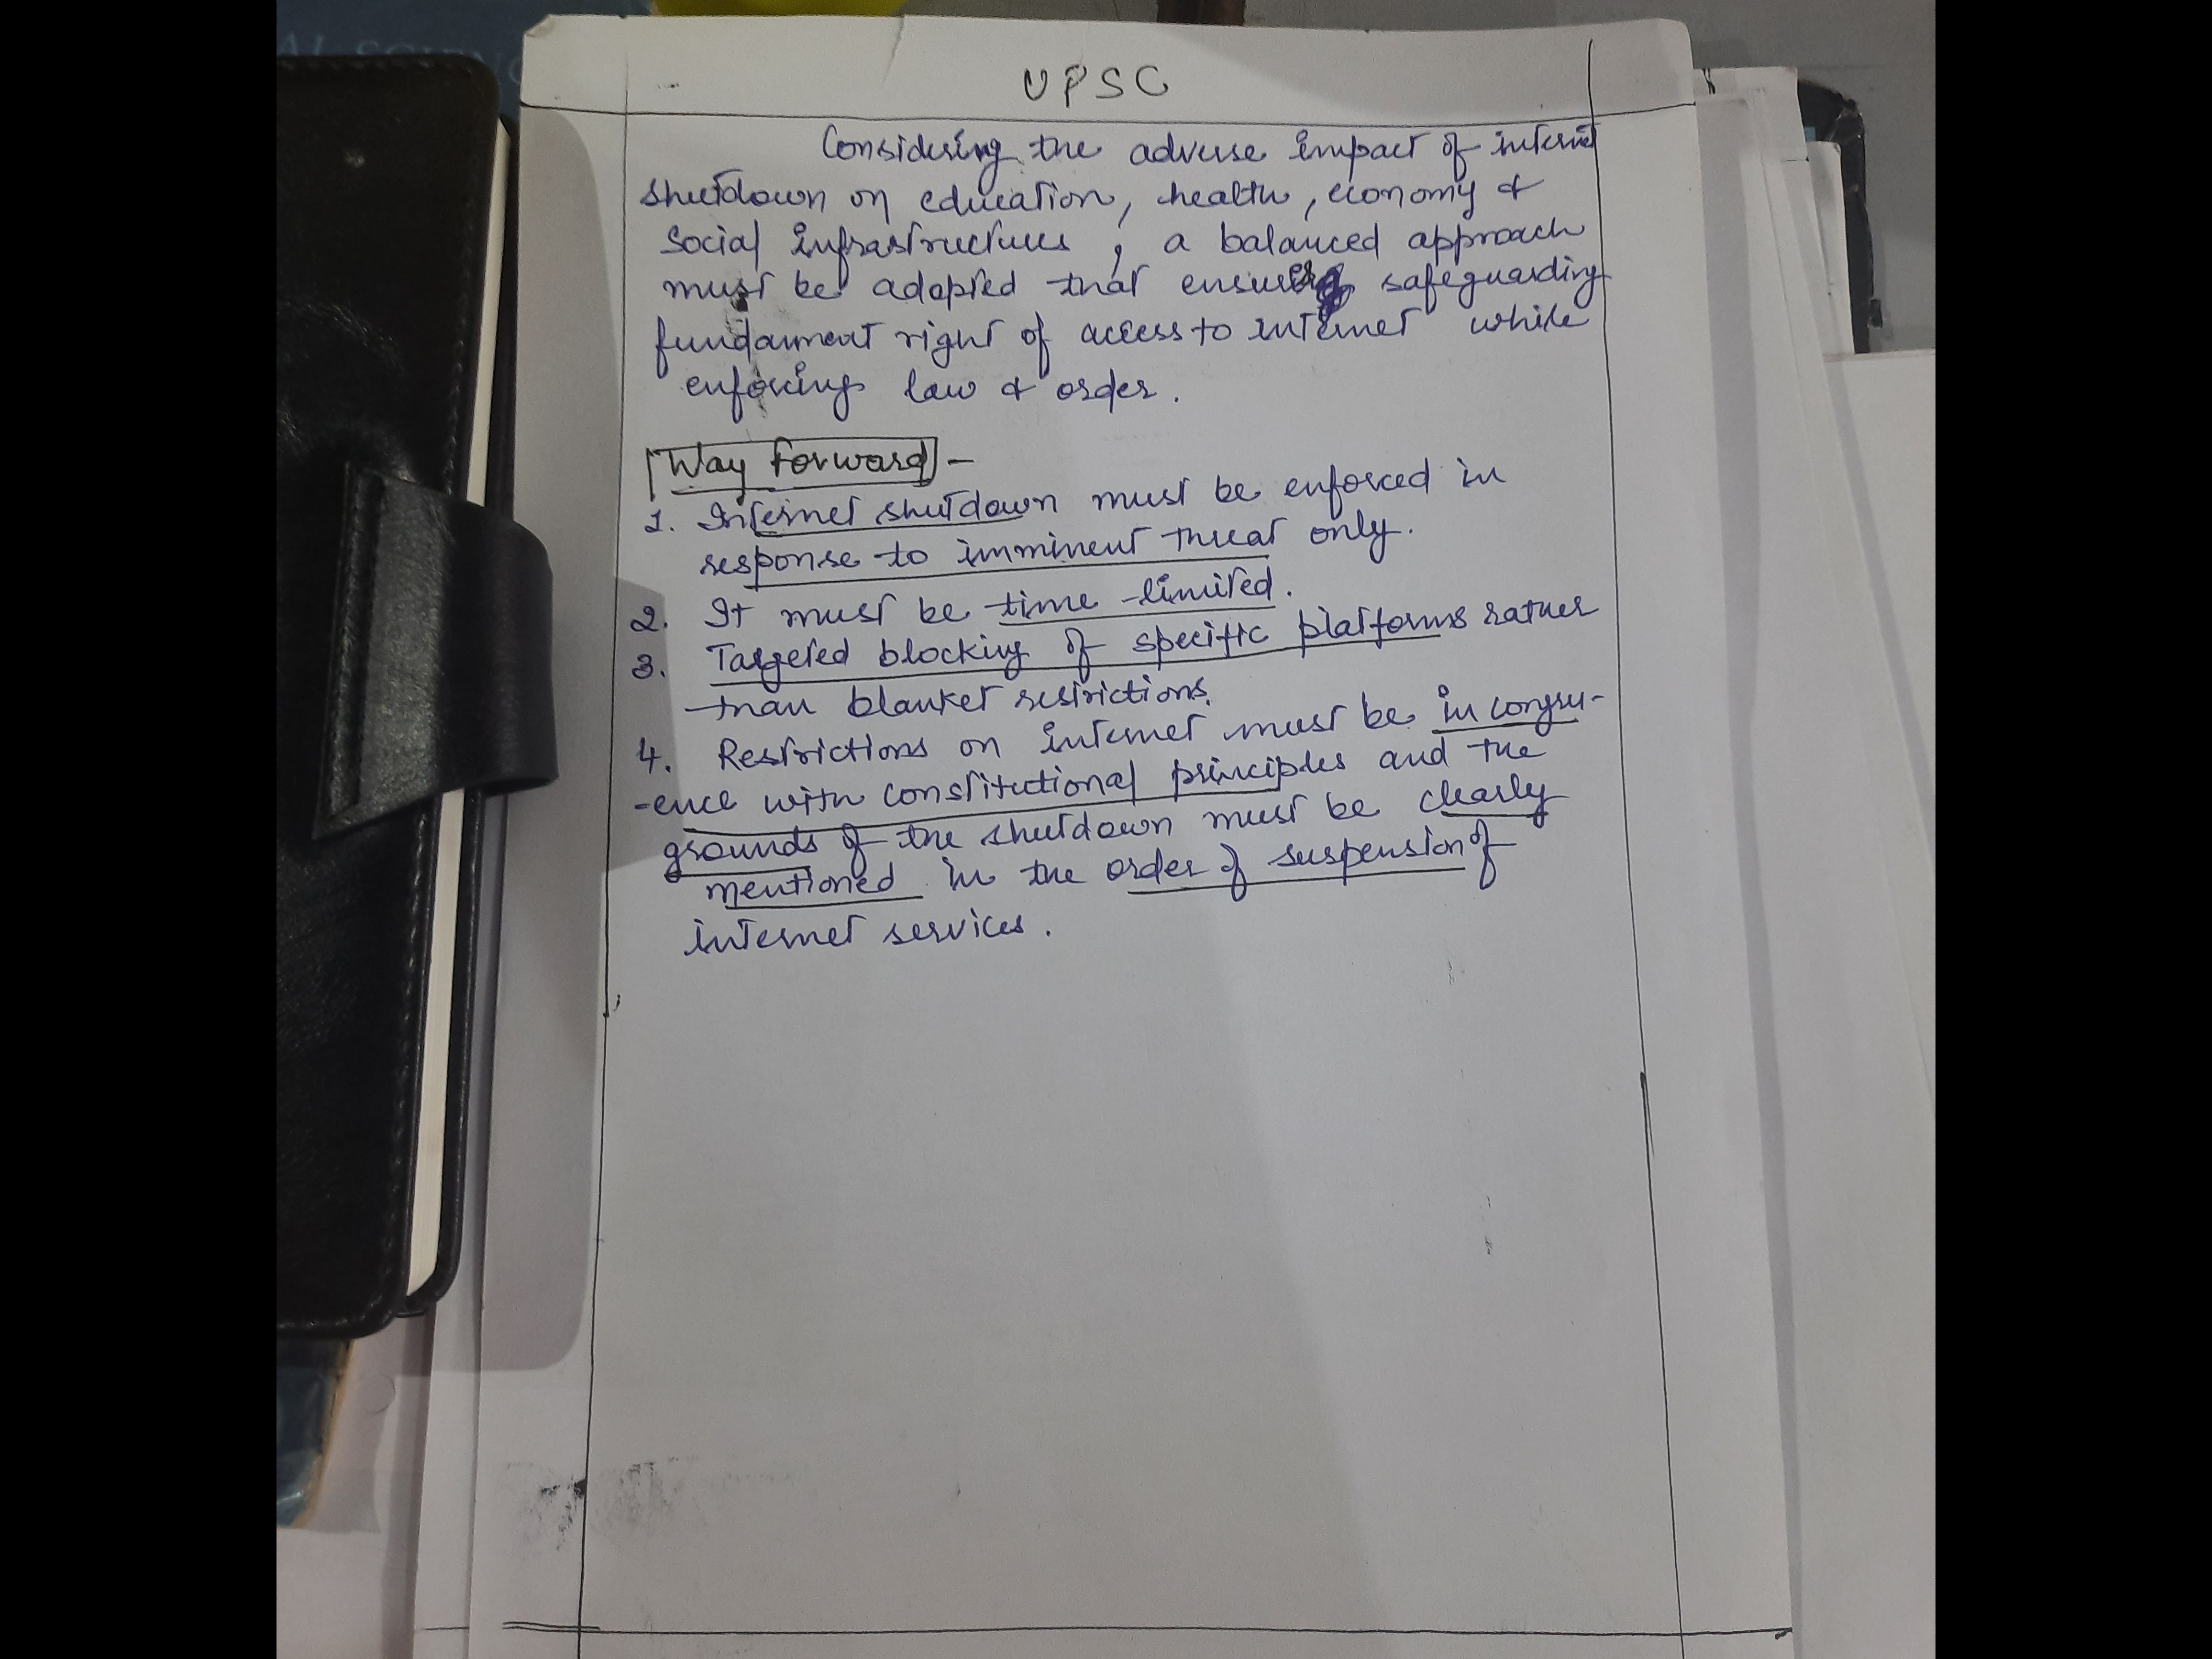 AL SCIENC
UPSC
Considering the adverse impact of internet
shutdown on education, health, economy &
social infrastructures, a balanced approach
must be adopted that ensures safeguarding
fundament right of access to internet while
enforcing law & order.
Way Forward -
1. Internet shutdown must be enforced in
response to imminent threat only.
2. It must be time-limited.
3. Targeted blocking of specific platforms rather
than blanket restrictions.
4. Restrictions on internet must be in congru-
-ence with constitutional principles and the
grounds of the shutdown must be clearly
mentioned in the order of suspension of
internet services.